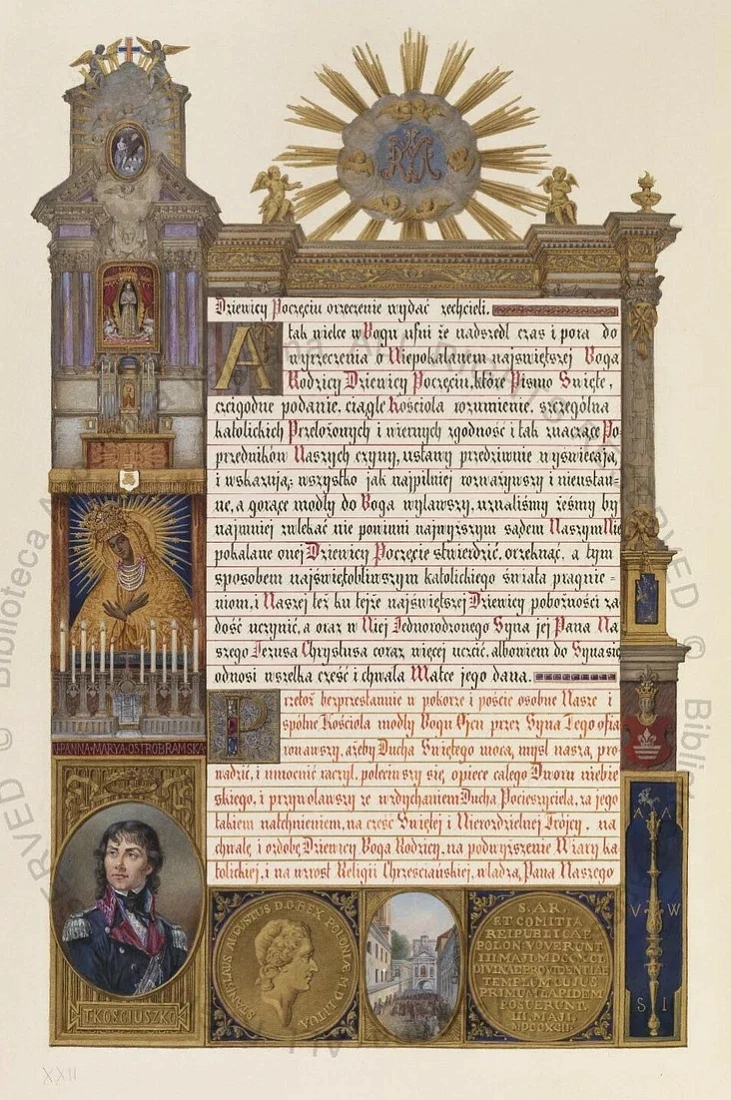 Dziewicy Poczęciu orzeczenie wydać zechcieli.
A tak wielce w Bogu ufni że nadszedł czas i pora do
wyrzeczenia o Niepokalanem najświętszej Boga
Rodzicy Dziewicy Poczęciu, które Pismo Święte,
czcigodne podanie, ciągłe Kościoła rozumienie, szczególna
katolickich Przełożonych i wiernych zgodność i tak znaczące Po
przedników Naszych czyny, ustawy przedziwnie wyświecają
i wskazują; wszystko jak najpilniej rozważywszy i nieustan=
ne, a gorące modły do Boga wylawszy, uznaliśmy żeśmy by
najmniej zwlekać nie powinni najwyższym sądem Naszym Nie
pokalane onej Dziewicy Poczęcie stwierdzić, orzeknąć, a tym
sposobem najświętobliwszym katolickiego świata pragnie=
niom, i Naszej też ku tejże najświętszej Dziewicy pobożności za
dość uczynić, a oraz w Niej Jednorodzonego Syna jej Pana Na
szego Jezusa Chrystusa coraz więcej uczcić, albowiem do Syna się
odnosi wszelka cześć i chwała Matce jego dana.
Przetoż bezprzestannie w pokorze i poście osobne Nasze i
spólne Kościoła modły Bogu Ojcu przez Syna Jego ofia
rowawszy, ażeby Ducha Świętego mocą, myśl naszą, pro=
wadzić, i umocnić raczył, poleciwszy się, opiece całego Dworu niebie
skiego, i przywoławszy ze wzdychaniem Ducha Pocieszyciela, za jego
takiem natchnieniem, na cześć Świętej i Nierozdzielnej Trójcy, na
chwałę i ozdobę Dziewicy Boga Rodzicy, na podwyższenie Wiary ka
tolickiej, i na wzrost Religii Chrześciańskiej, władzą Pana Naszego
N·PANNA·MARYA·OSTROBRAMSKA
T.KOŚCIUSZKO
STANISLAUS AUGUSTUS D.G.REX POLONIÆ M.D.LITUA
S. AR.
ET COMITIA
REIPUBLICAE
POLON VOVERUNT
III MAJI MDCCXCI
DIVINAE PROVIDENTIAE
TEMPLUM CUJUS
PRIMUM LAPIDEM
POSUERUNT
III MAJI,
MDCCXCII
A A
V W
S I
XXII